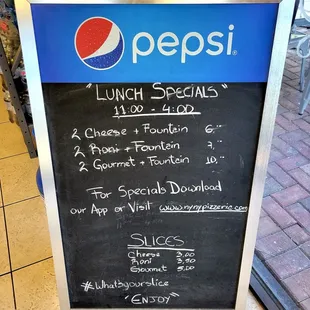 pepsi
"Lunch Specials"
11:00 - 4:00
2 Cheese + Fountain 6.--
2 Roni + Fountain 7.--
2 Gourmet + Fountain 10.--
For Specials Download
our App or Visit www.nynypizzeria.com
Slices
Cheese 3.00
Roni 3.50
Gourmet 5.00
#Whatsyourslice
"Enjoy"